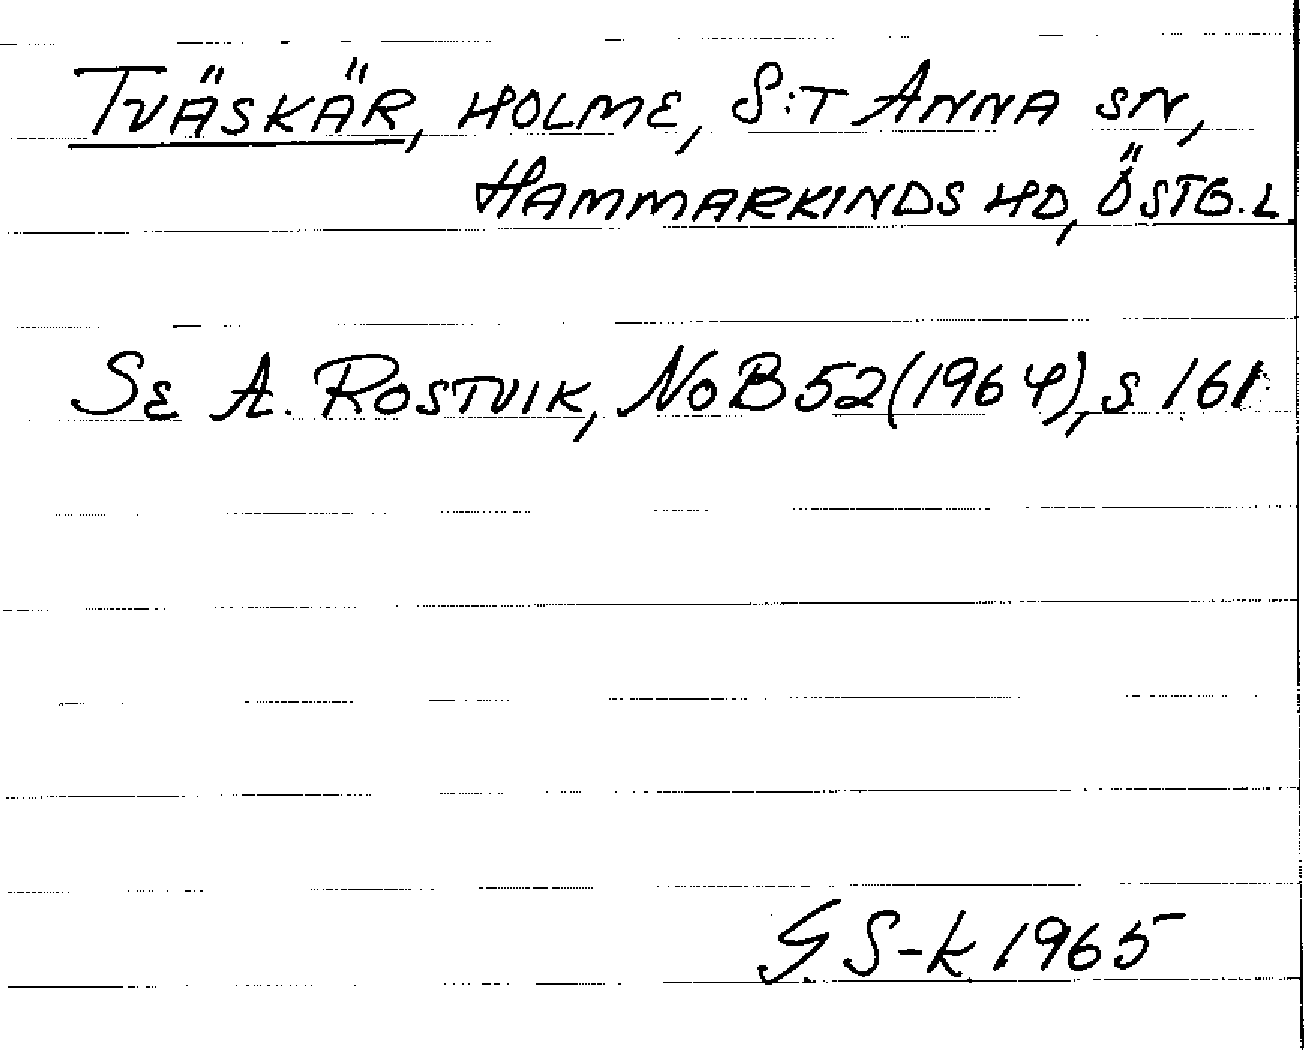 TVÄSKÄR, HOLME, S:T ANNA SN,
HAMMARKINDS HD, ÖSTG.L.
SE A. ROSTVIK, NOB 52 (1964), S 161
G. S-K 1965